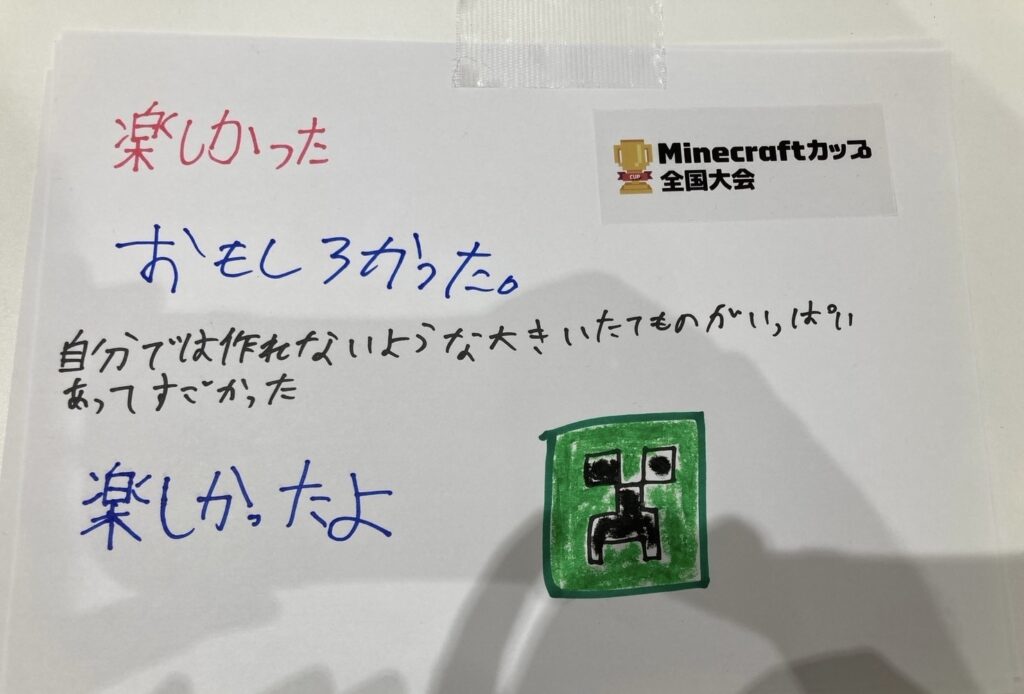 楽しかった
Minecraftカップ
CUP
全国大会
おもしろかった。
自分では作れないような大きいたてものがいっぱい
あってすごかった
楽しかったよ